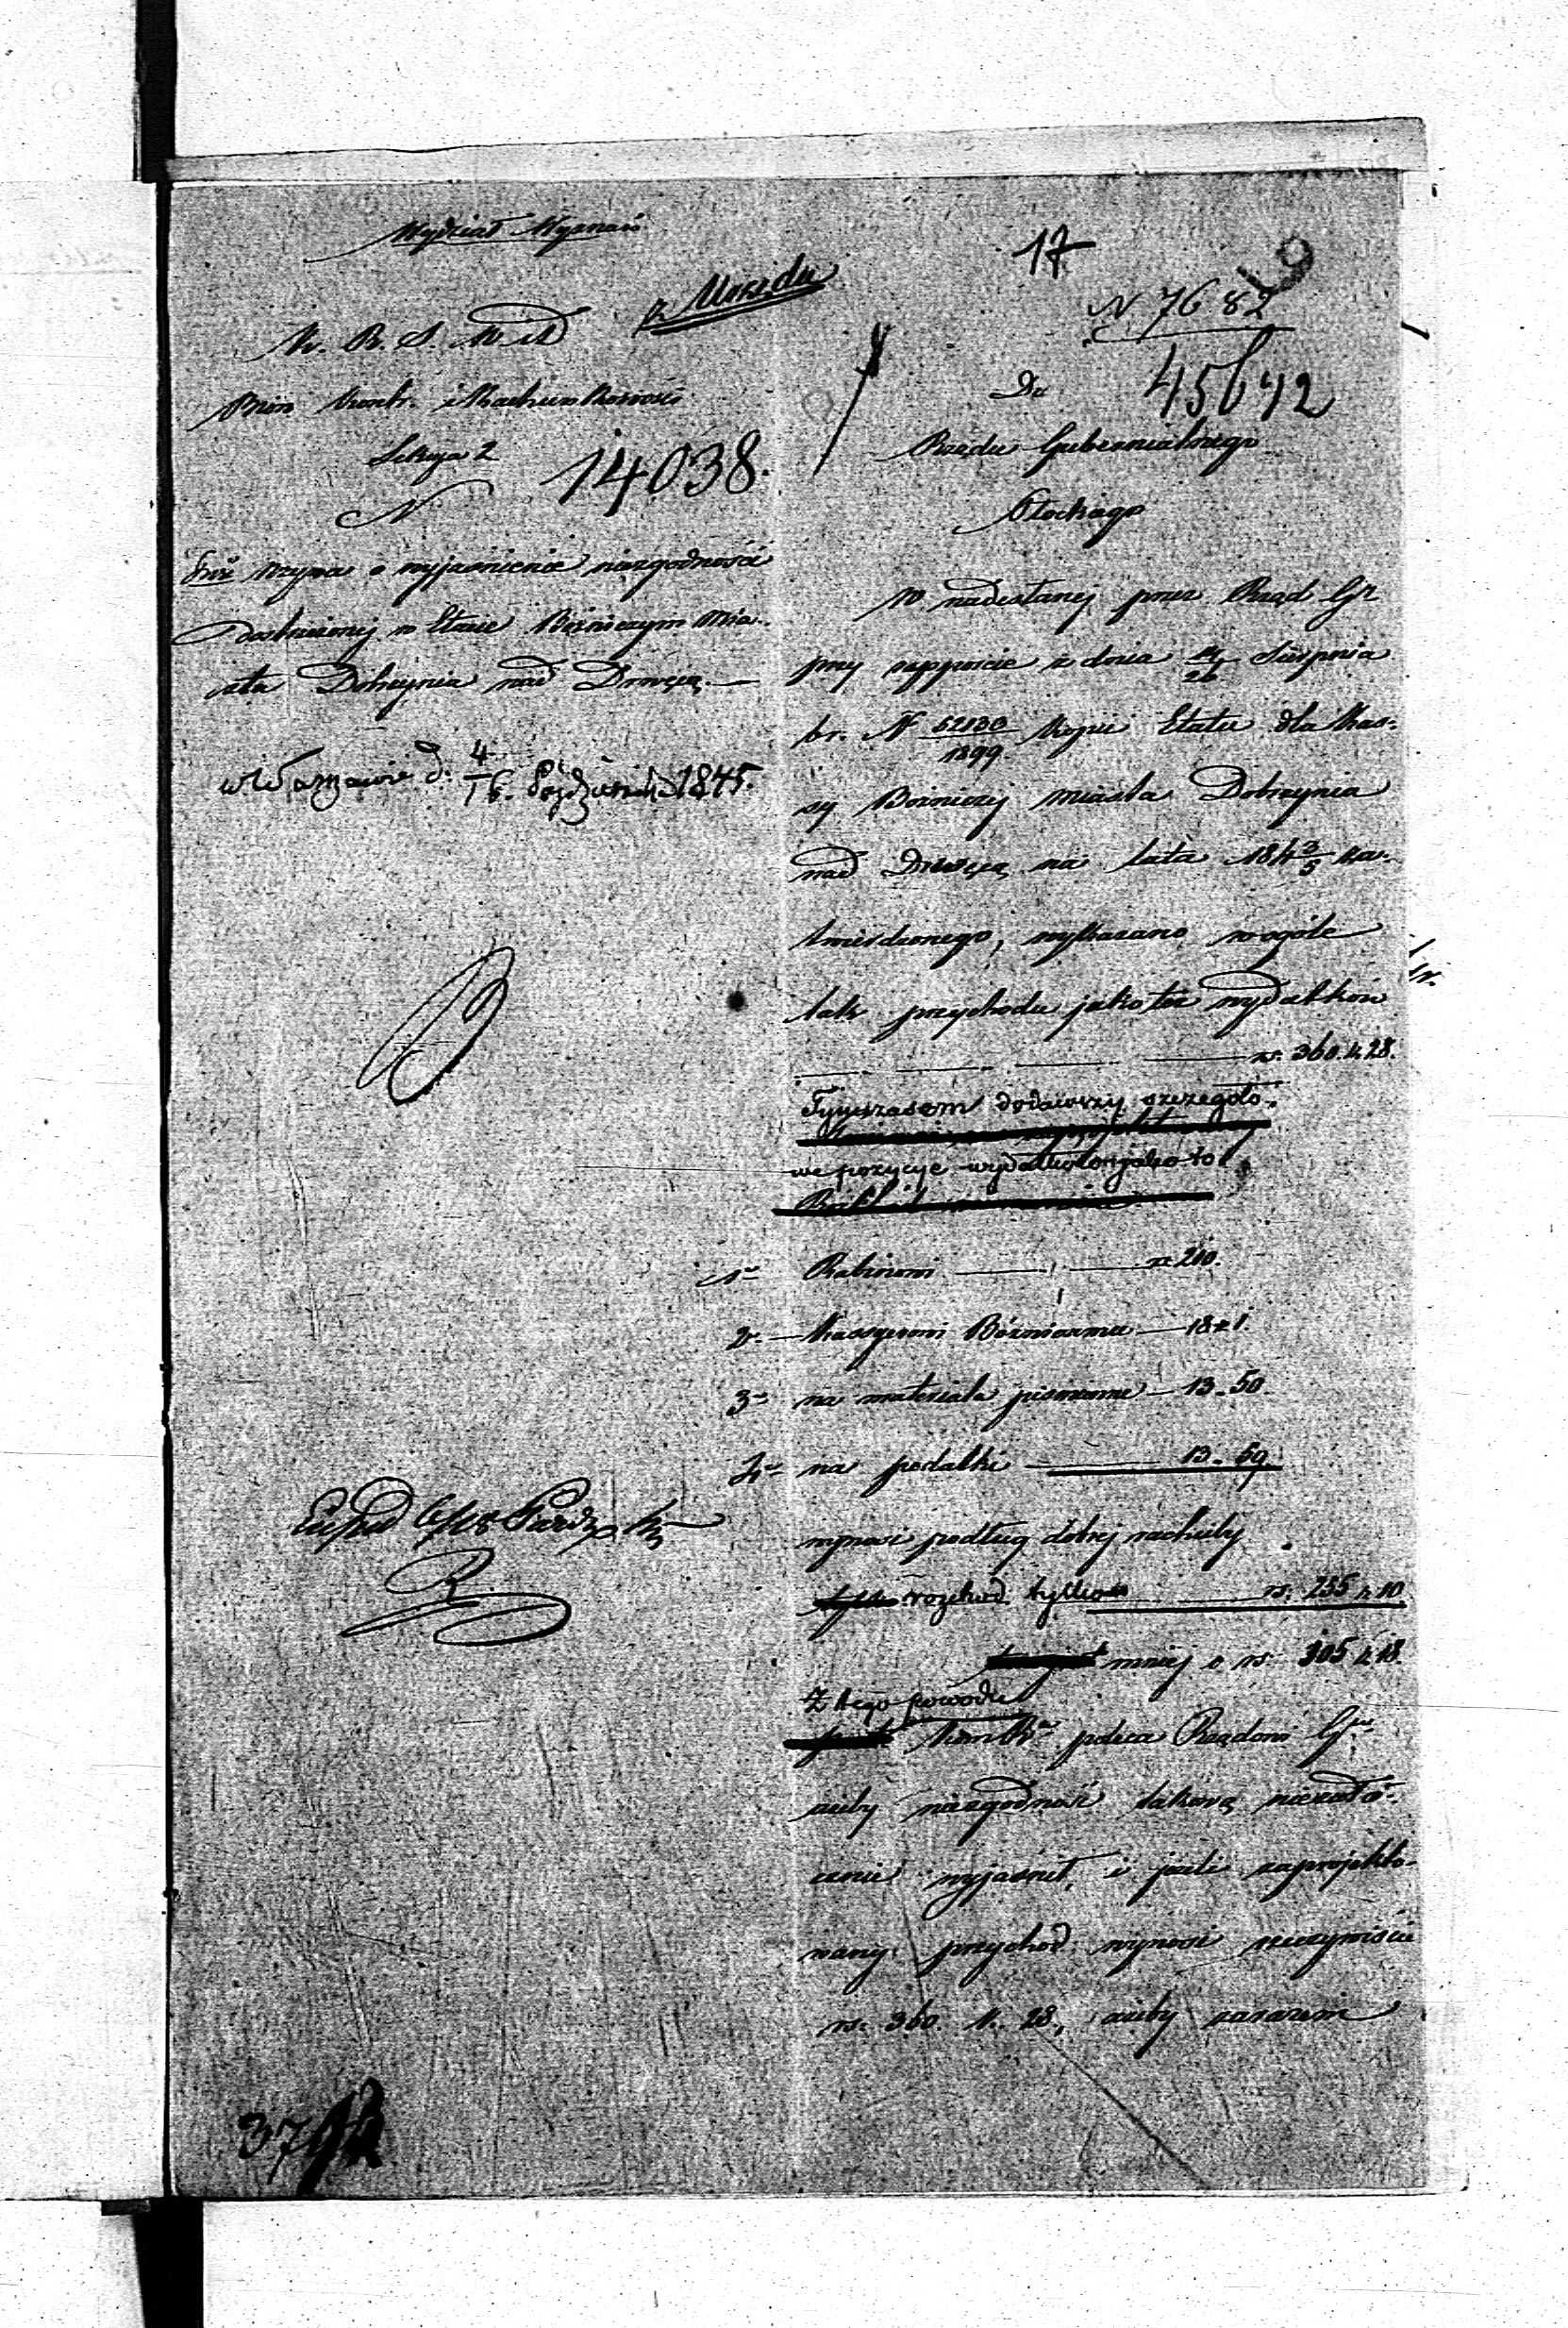 Wydział Wyznań
z Urzędu
K. R. S. W. i D.
Biuro Kontr. i Rachunkowości
Sekcya 2
N 14038.
wzywa o wyjaśnienie niezgodności
dostrzeżonej w Etacie Bóżniczym Mia-
sta Dobrzynia nad Drwęcą.
w Warszawie d. 4/16. Października 1845.
37
17
19
N 7682
45692
Do
Rządu Gubernialnego
Płockiego
W nadesłanej przez Rząd Gr
przy rapporcie z dnia 14/26 Sierpnia
br. N 52130/1899 kopii Etatu dla Kas-
sy Bóżniczej miasta Dobrzynia
nad Drwęcą na lata 184 3/5 za-
twierdzonego, wykazano w ogóle
tak przychodu jako też wydatków
rs. 360. k. 28.
Tymczasem dodawszy szczegóło-
we pozycye wydatków jako to
1° Rabinowi rs 210.
2° Kassyerowi Bóżniczemu 18 1.
3° na materiały piśmienne 13. 50.
4° na podatki 13. 59
wynosi podług dobrej rachuby
rozchód tylko rs. 255 k. 10
mniej o rs. 105 k. 18.
Z tego powodu
Kom. Rz. poleca Rządowi Gu
ażeby niezgodność takową niezwło-
cznie wyjaśnił, i jeżeli zaprojekto-
wany przychód wynosi rzeczywiście
rs. 360. k. 28., ażeby zarazem